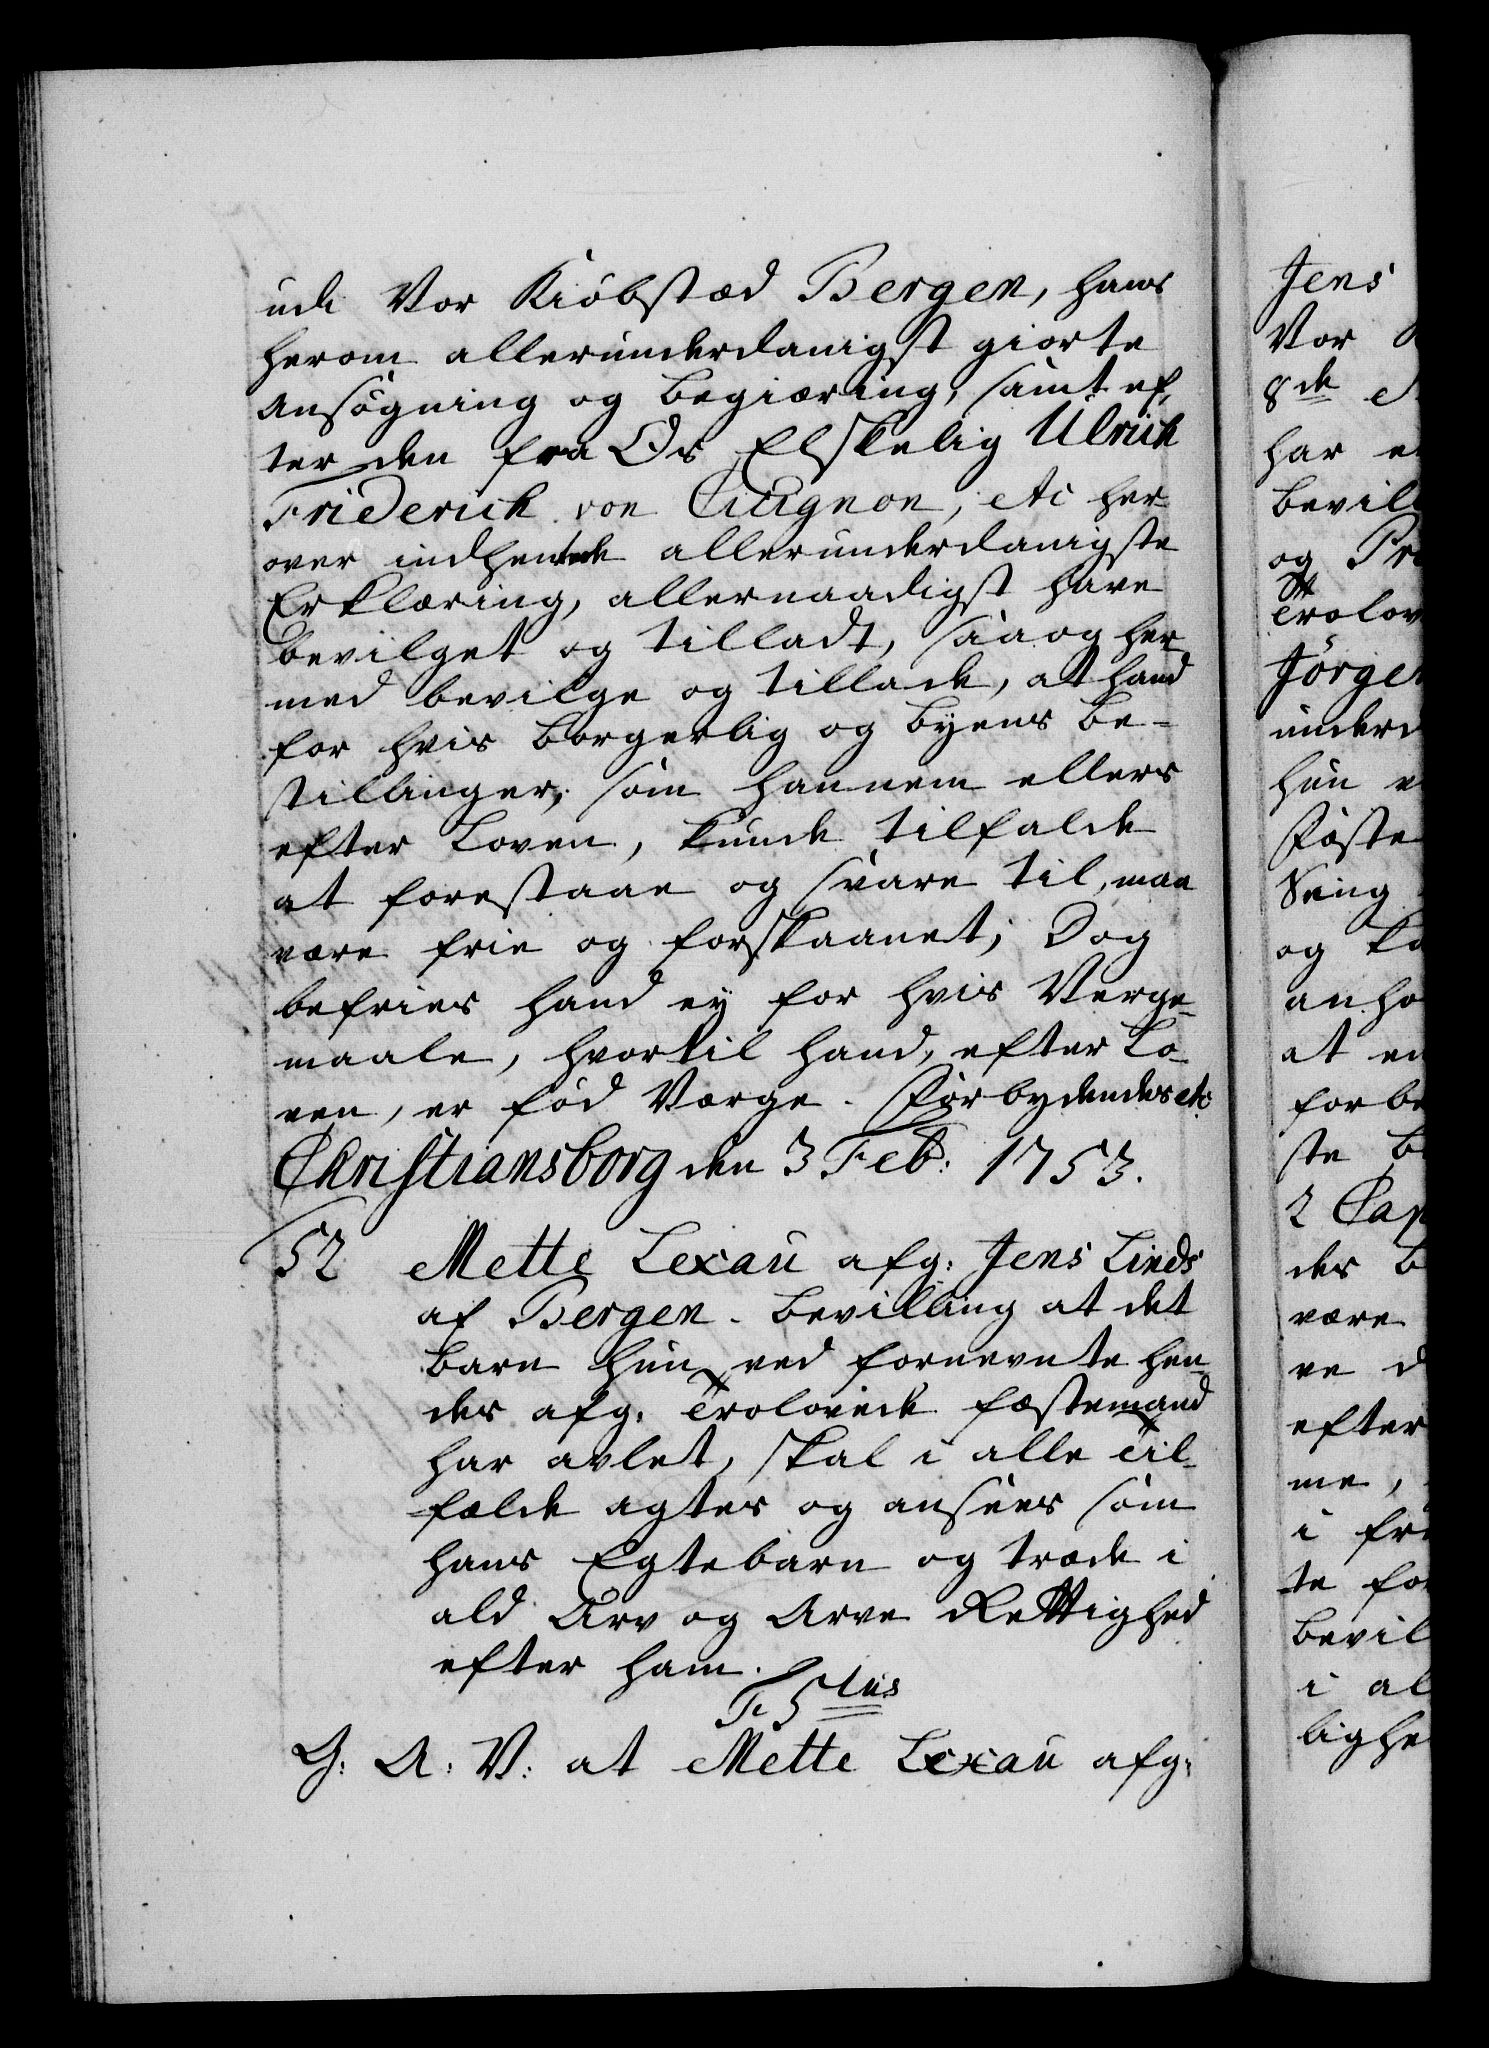 udi Vor Kiöbstæd Bergen, hans
herom allerunderdanigst giorte
ansögning og begiæring, samt ef-
ter den fra Os Elskelig Ulrich
Friderich von Cicignon, etc her-
over indhentede allerunderdanigste
Erklæring, allernaadigst have
bevilget og tilladt, saa og her-
med bevilge og tillade, at hand
for hvis borgerlig og byens be-
stillinger, som hannem ellers
efter Loven, kunde tilfalde
at forestaae og svare til, maa
være frie og forskaanet; Dog
befries hand ey for hvis Verge-
maale, hvortil hand, efter Lo-
ven, er fód Værge. Forbydendes etc
Christiansborg den 3 Feb: 1753.
52 Mette Lexau afg: Jens Linds
af Bergen. bevilling at det
barn hun ved fornevnte hen-
des afg. Trolovede fæstemand
har avlet, skal i alle Til-
fælde agtes og ansees som
hans Egtebarn og træde i
ald Arv og Arve Rettighed
efter ham.
F. 5tus
G: A: V: at Mette Lexau afg:
Jens
Vor
8de
har
bevil
og Pr
Trolov
Jörgen
underd
hun
Föste
Sving
og
anho
at
forbe
ste
2 Cap
des
være
ve
efter
me,
i fr
te for
bevil
i al
lighe